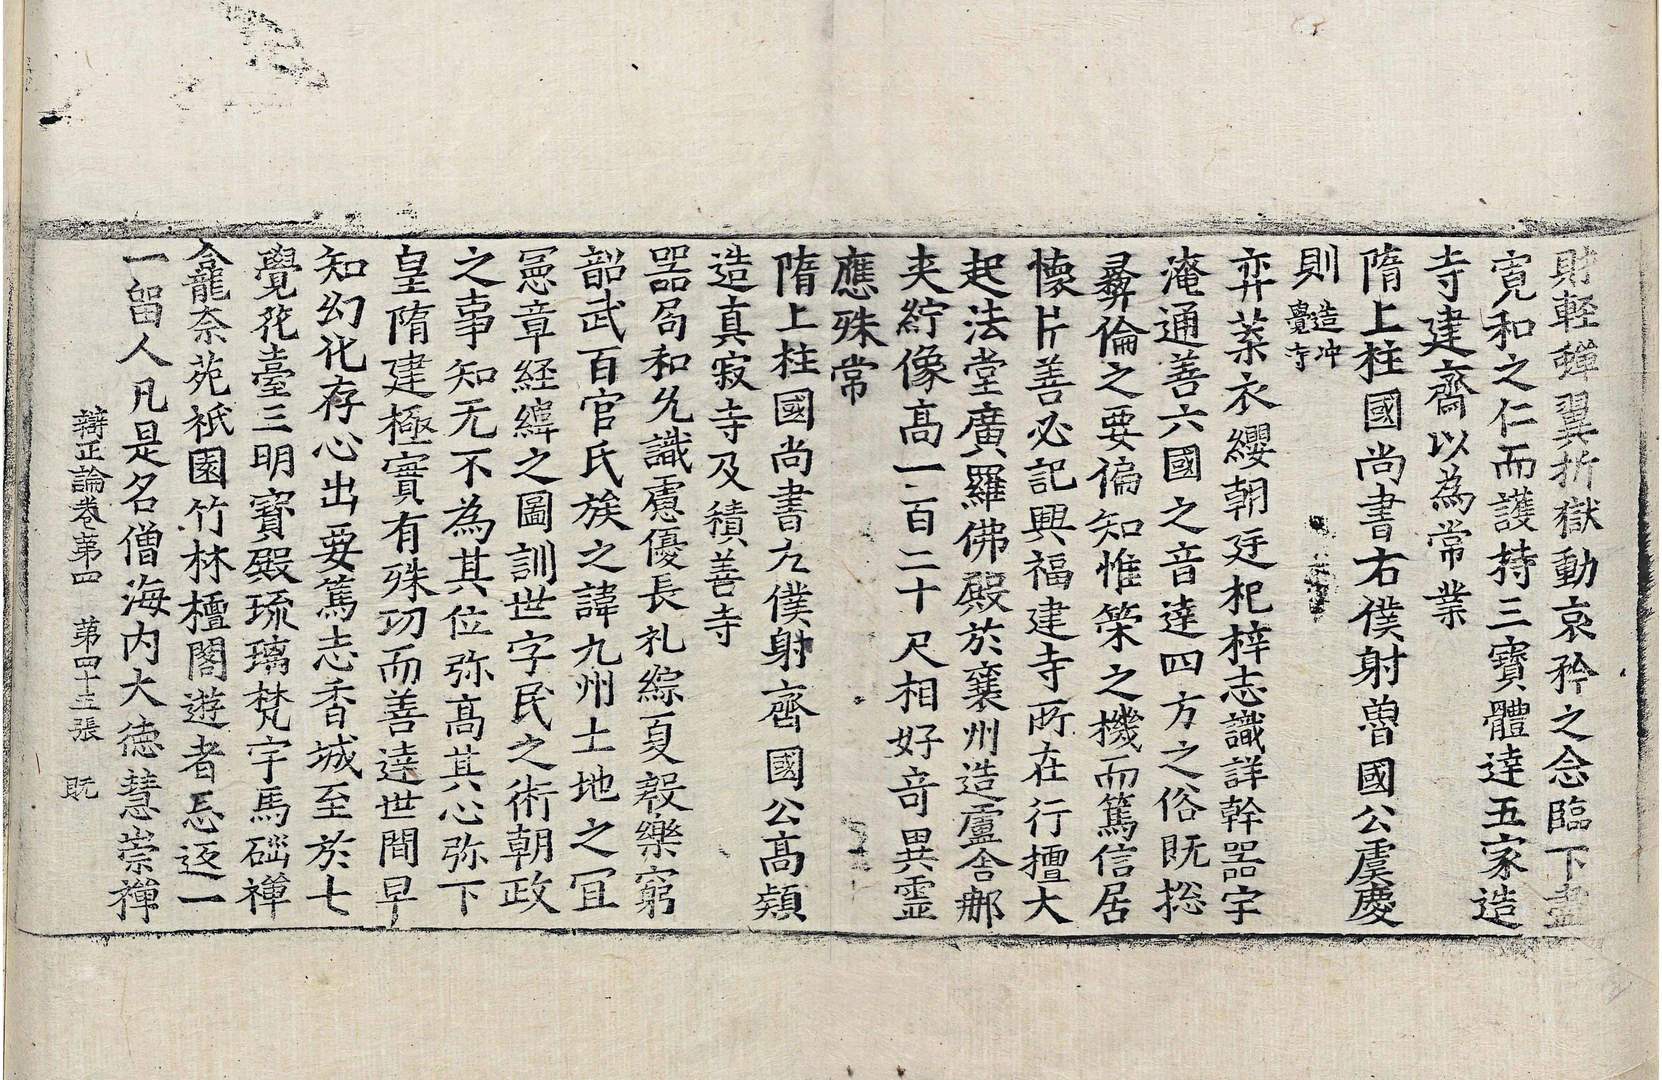 財輕蟬翼折獄動哀矜之念臨下盡
寬和之仁而護持三寶體達五家造
寺建齋以為常業
隋上柱國尚書右僕射魯國公虞慶
則造沖覺寺
弈葉衣纓朝廷杞梓志識詳幹器宇
淹通善六國之音達四方之俗既揔
彛倫之要徧知惟榮之機而篤信居
懷片善必記興福建寺所在行擅大
起法堂廣羅佛殿於襄州造盧舍那
夾紵像高一百二十尺相好竒異靈
應殊常
隋上柱國尚書左僕射齊國公高熲
造真寂寺及積善寺
器局和允識慮優長礼綜夏殷樂窮
韶武百官氏族之諱九州土地之冝
憲章經緯之圖訓世字民之術朝政
之事知无不為其位弥高其心弥下
皇隋建極實有殊功而善達世間早
知幻化存心出要篤志香城至於七
覺花臺三明寶殿琉璃梵宇馬碯禪
龕龍柰苑祇園竹林檀閣遊者忘返一
一留人凡是名僧海內大德慧崇禪
辯正論卷第四　第四十三張　既